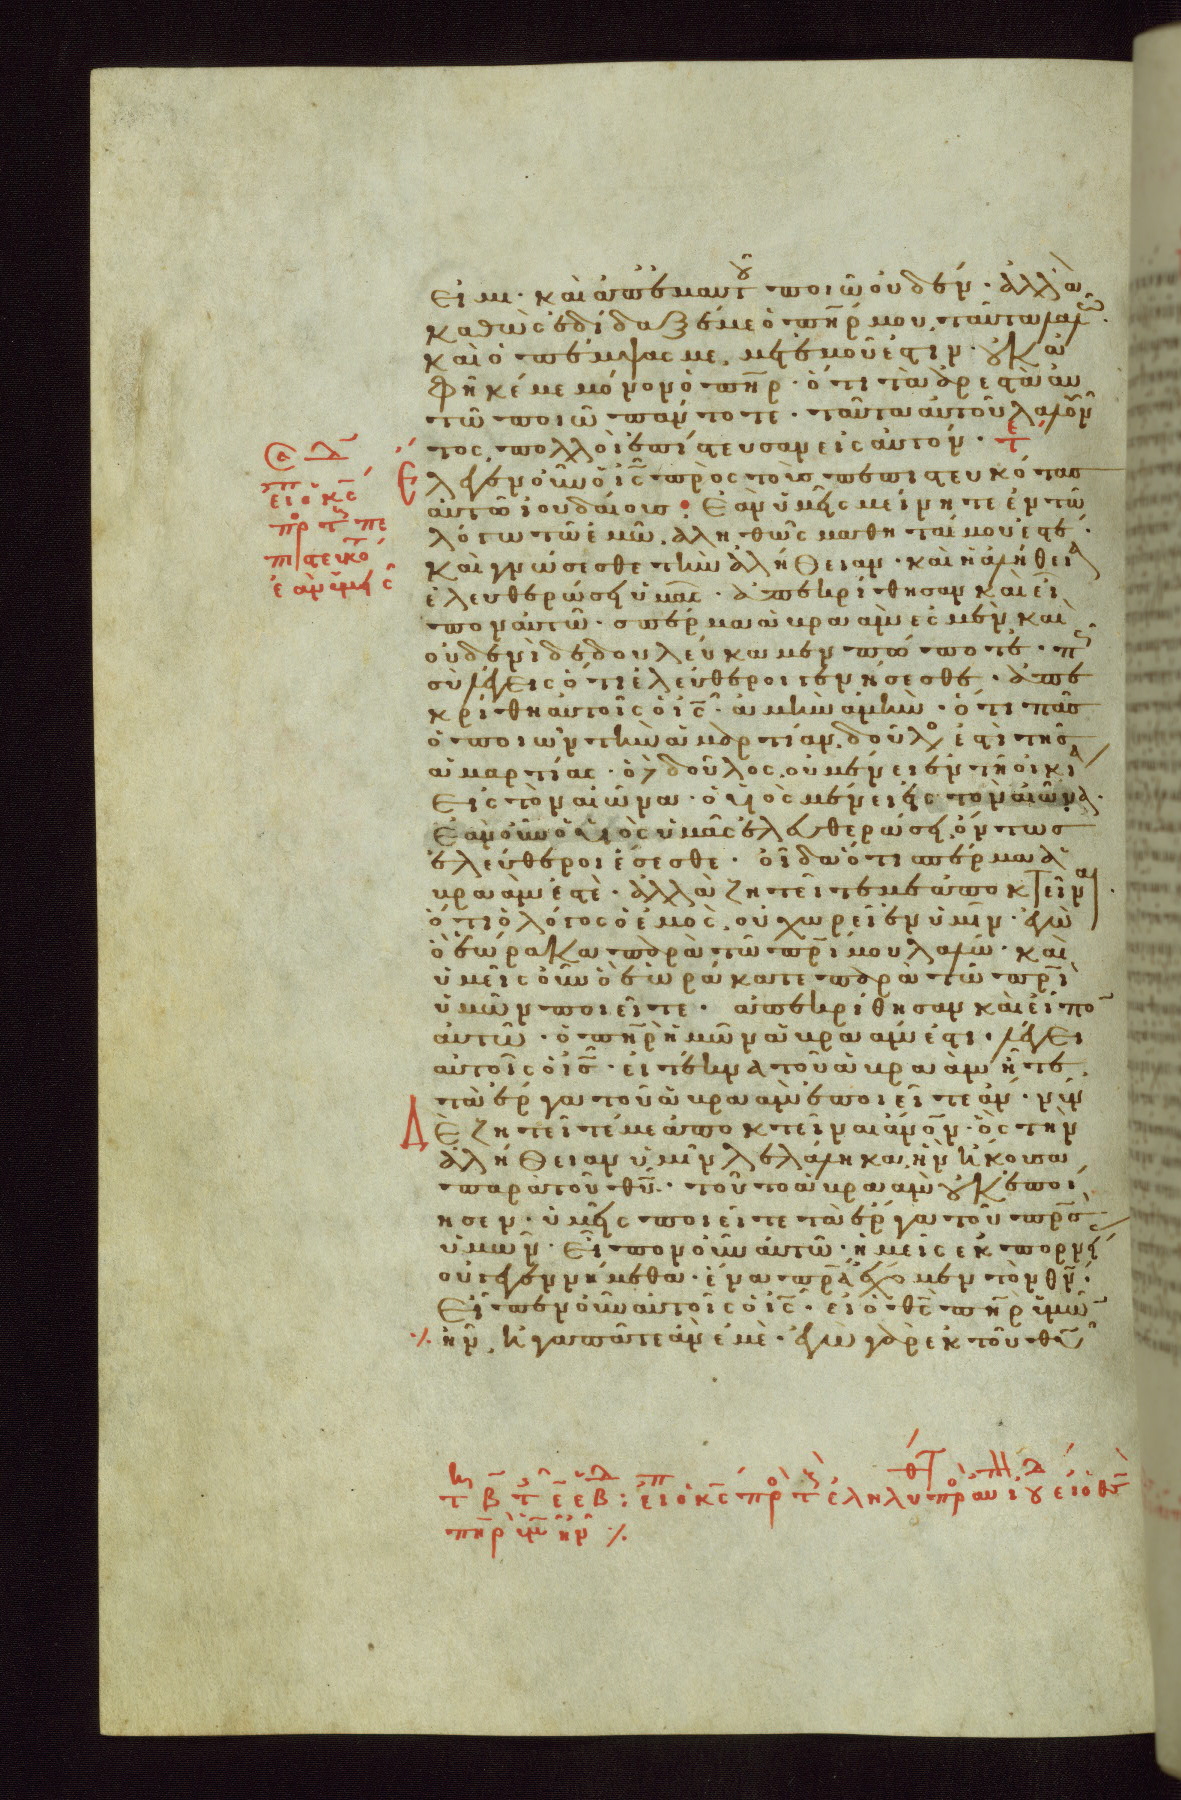 εἰμι· καὶ ἀπ' ἐμαυτοῦ ποιῶ οὐδέν· ἀλλὰ
καθὼς ἐδίδαξέ με ὁ πηρ μου, ταῦτα λαλῶ.
καὶ ὁ πέμψας με, μετ' ἐμοῦ ἐστιν· οὐκ ἀ
φῆκέ με μόνον ὁ πηρ· ὅτι τὰ ἀρεστὰ αὐ
τῶ ποιῶ πάντοτε· ταῦτα αὐτοῦ λαλοῦν
τος, πολλοὶ ἐπίστευσαν εἰς αὐτόν·
Ελεγεν οὖν ὁ ις πρὸς τοὺς πεπιστευκότας
αὐτῶ ἰουδαίους· Ἐὰν ὑμεῖς μείνητε ἐν τῶ
λόγω τῶ ἐμῶ, ἀληθῶς μαθηταί μου ἐστέ·
καὶ γνώσεσθε τὴν ἀλήθειαν· καὶ ἡ ἀλήθεια
ἐλευθερώσει ὑμᾶς· ἀπεκρίθησαν καὶ εἶ
πον αὐτῶ· σπέρμα ἀβραάμ ἐσμεν καὶ
οὐδενὶ δεδουλεύκαμεν πώποτε· πῶς
σὺ λέγεις ὅτι ἐλεύθεροι γενήσεσθε· ἀπε
κρίθη αὐτοῖς ὁ ις· ἀμὴν ἀμὴν· ὅτι πᾶς
ὁ ποιῶν τὴν ἁμαρτίαν, δοῦλός ἐστι τῆς
ἁμαρτίας· ὁ δὲ δοῦλος, οὐ μένει ἐν τῆ οἰκία
εἰς τὸν αἰῶνα· ὁ υἱὸς μένει εἰς τὸν αἰῶνα.
Ἐὰν οὖν ὁ υἱὸς ὑμᾶς ἐλευθερώσει, ὄντως
ἐλεύθεροι ἔσεσθε· οἶδα ὅτι σπέρμα ἀ
βραάμ ἐστὲ· ἀλλὰ ζητεῖτέ με ἀποκτεῖναι·
ὅτι ὁ λόγος ὁ ἐμὸς, οὐ χωρεῖ ἐν ὑμῖν· ἐγὼ
ὃ ἑώρακα παρὰ τῶ πρι μου λαλῶ· καὶ
ὑμεῖς οὖν ὃ ἑωράκατε παρὰ τῶ πρι
ὑμῶν ποιεῖτε· ἀπεκρίθησαν καὶ εἶπον
αὐτῶ· ὁ πηρ ἡμῶν ἀβραάμ ἐστι· λέγει
αὐτοῖς ὁ ις· εἰ τέκνα τοῦ ἀβραὰμ ἦτε,
τὰ ἔργα τοῦ ἀβραὰμ ἐποιεῖτε ἄν· νῦν
δὲ ζητεῖτέ με ἀποκτεῖναι ἄνον· ὃς τὴν
ἀλήθειαν ὑμῖν λελάληκα, ἣν ἤκουσα
παρὰ τοῦ θυ· τοῦτο ἀβραὰμ οὐκ ἐποί
ησεν· ὑμεῖς ποιεῖτε τὰ ἔργα τοῦ πρς
ὑμῶν· Εἶπον οὖν αὐτῶ· ἡμεῖς ἐκ πορνεί
οὐ γεγεννήμεθα· ἕνα πρα ἔχομεν τὸν θν·
Εἶπεν οὖν αὐτοῖς ὁ ις· εἰ ὁ θς πηρ ὑμῶν
ἦν, ἠγαπᾶτε ἂν ἐμὲ· ἐγὼ γὰρ ἐκ τοῦ θυ
εἶπ ὁ κς
πρ τ πε
πιστευκό
ἐὰν ὑμεῖς
εἶπ ὁ κς πρ τ ἐληλυ πρ αὐ ιου εἰ ὁ θς
πηρ ὑμ ἦν